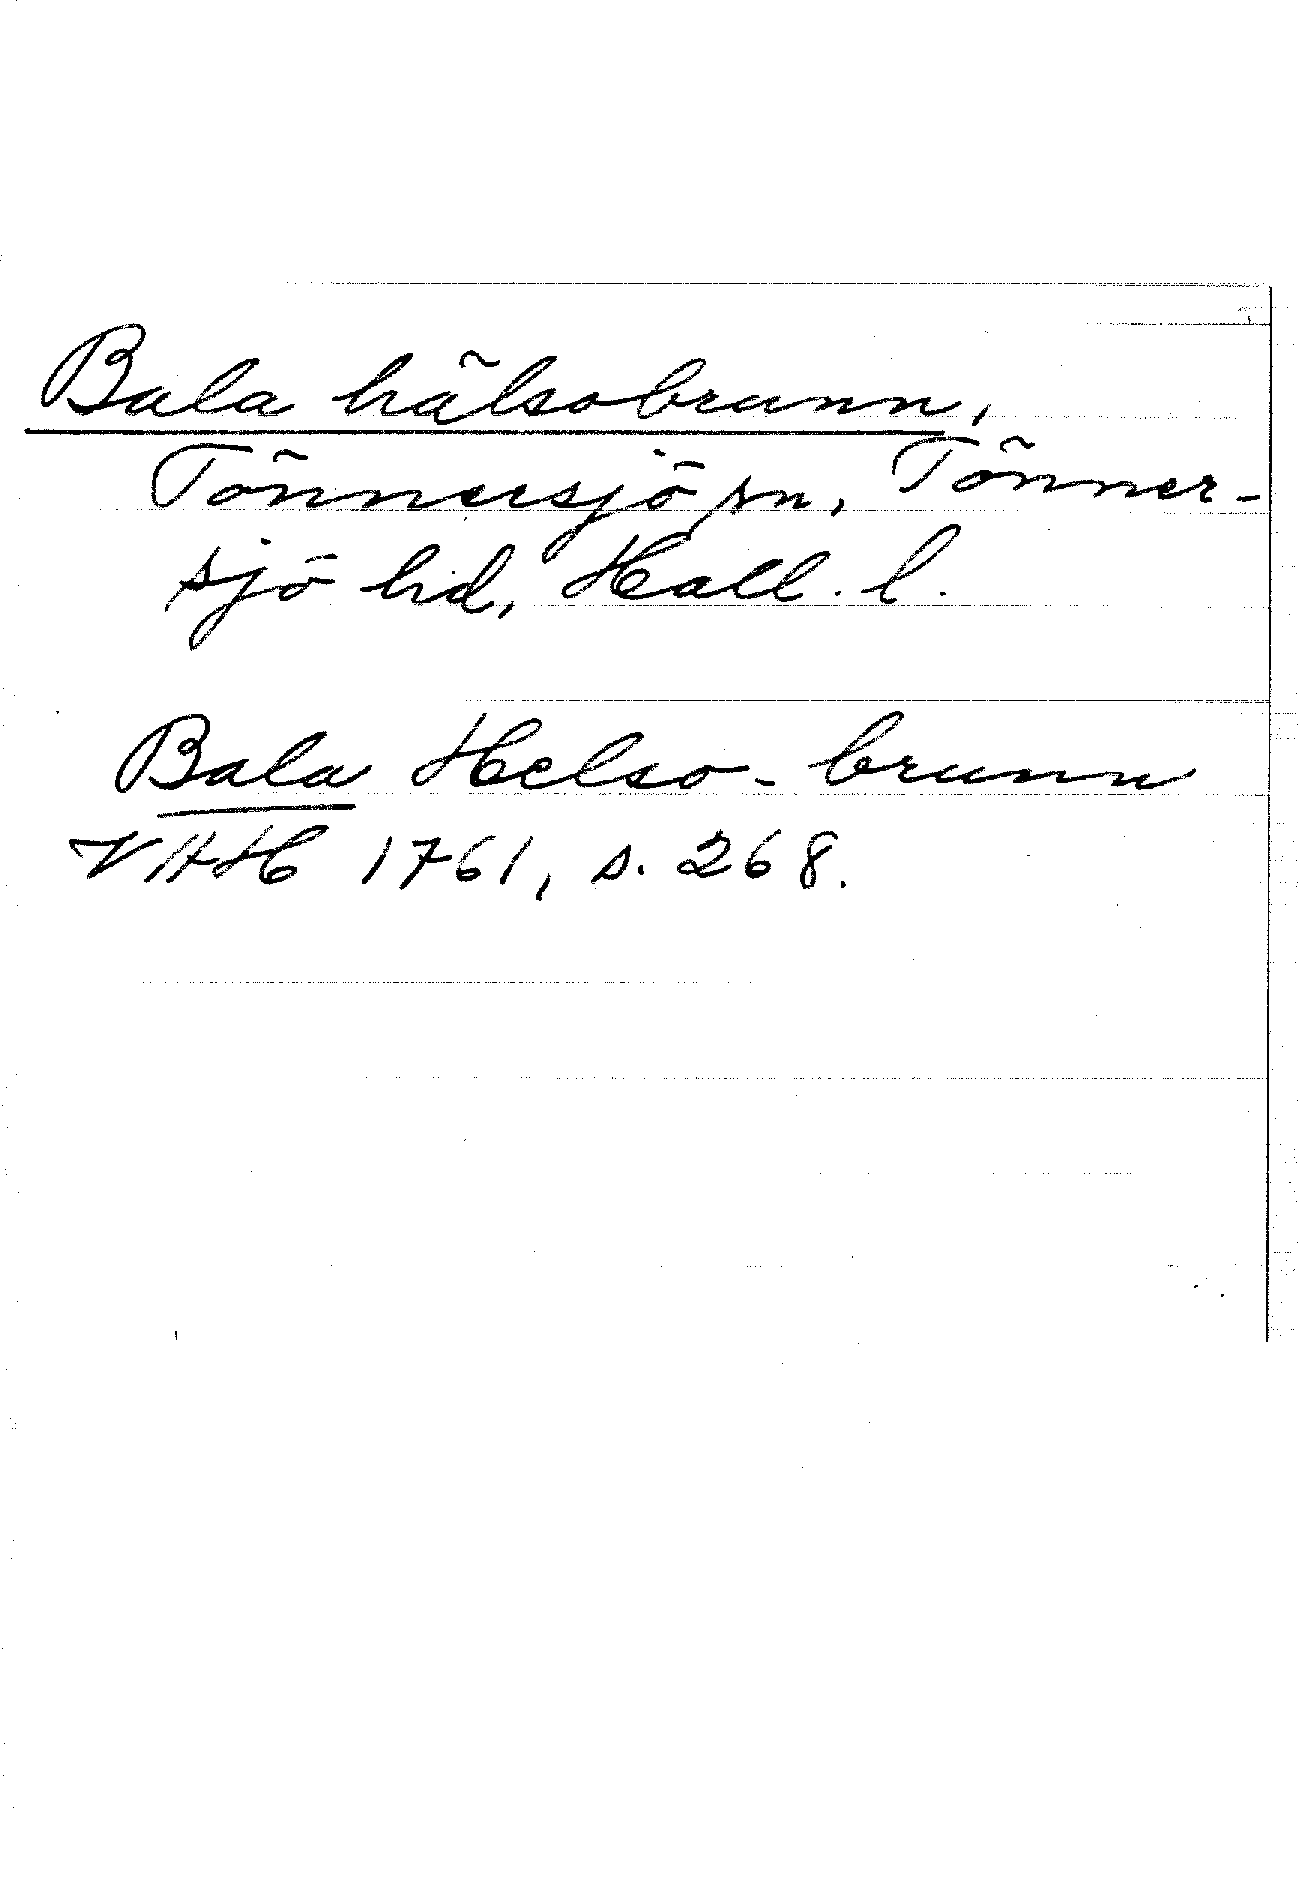 Bala hälsobrunn,
Tönnersjö sn, Tönner-
sjö hd, Hall. l.
Bala Helso-brunn
VAH 1761, s. 268.